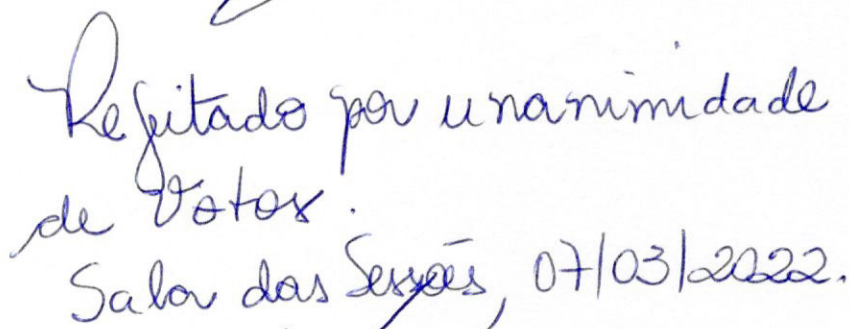 Rejeitado por unanimidade
de Votos.
Sala das Sessões, 07/03/2022.